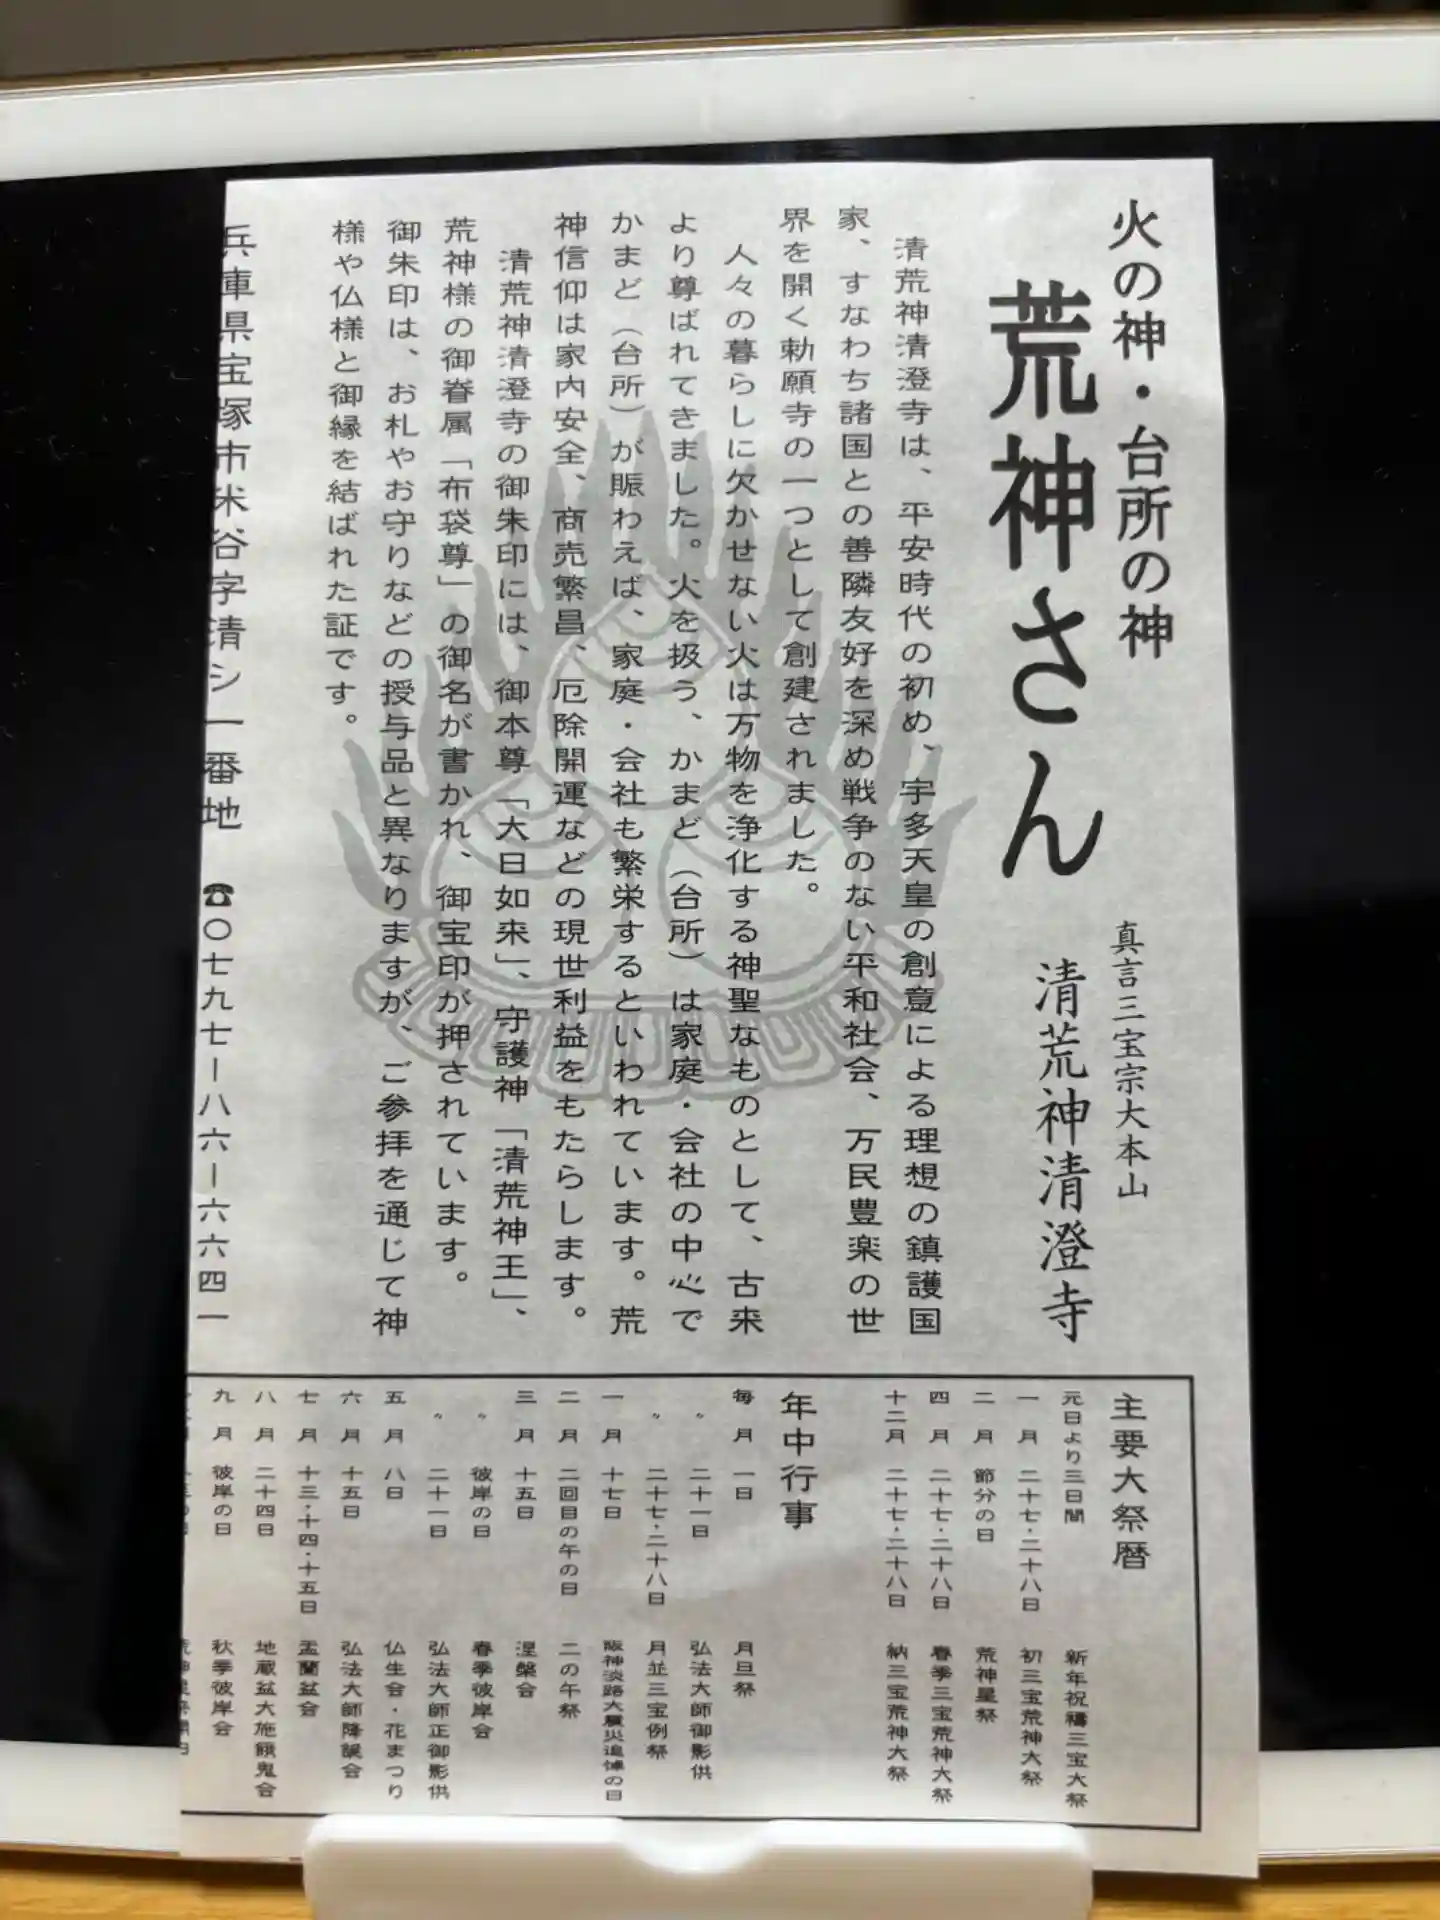 火の神・台所の神
荒神さん
真言三宝宗大本山
清荒神清澄寺
清荒神清澄寺は、平安時代の初め、宇多天皇の創意による理想の鎮護国
家、すなわち諸国との善隣友好を深め戦争のない平和社会、万民豊楽の世
界を開く勅願寺の一つとして創建されました。
人々の暮らしに欠かせない火は万物を浄化する神聖なものとして、古来
より尊ばれてきました。火を扱う、かまど（台所）は家庭・会社の中心で
かまど（台所）が賑わえば、家庭・会社も繁栄するといわれています。荒
神信仰は家内安全、商売繁昌、厄除開運などの現世利益をもたらします。
清荒神清澄寺の御朱印には、御本尊「大日如来」、守護神「清荒神王」、
荒神様の御眷属「布袋尊」の御名が書かれ、御宝印が押されています。
御朱印は、お札やお守りなどの授与品と異なりますが、ご参拝を通じて神
様や仏様と御縁を結ばれた証です。
兵庫県宝塚市米谷字清シ一番地 ☎〇七九七ー八六ー六六四一
主要大祭暦
元日より三日間 新年祝禱三宝大祭
一月 二十七・二十八日 初三宝荒神大祭
二月 節分の日 荒神星祭
四月 二十七・二十八日 春季三宝荒神大祭
十二月 二十七・二十八日 納三宝荒神大祭
年中行事
毎月 一日 月旦祭
〃 二十一日 弘法大師御影供
〃 二十七・二十八日 月並三宝例祭
一月 十七日 阪神淡路大震災追悼の日
二月 二回目の午の日 二の午祭
三月 十五日 涅槃会
〃 彼岸の日 春季彼岸会
〃 二十一日 弘法大師正御影供
五月 八日 仏生会・花まつり
六月 十五日 弘法大師降誕会
七月 十三・十四・十五日 盂蘭盆会
八月 二十四日 地蔵盆大施餓鬼会
九月 彼岸の日 秋季彼岸会